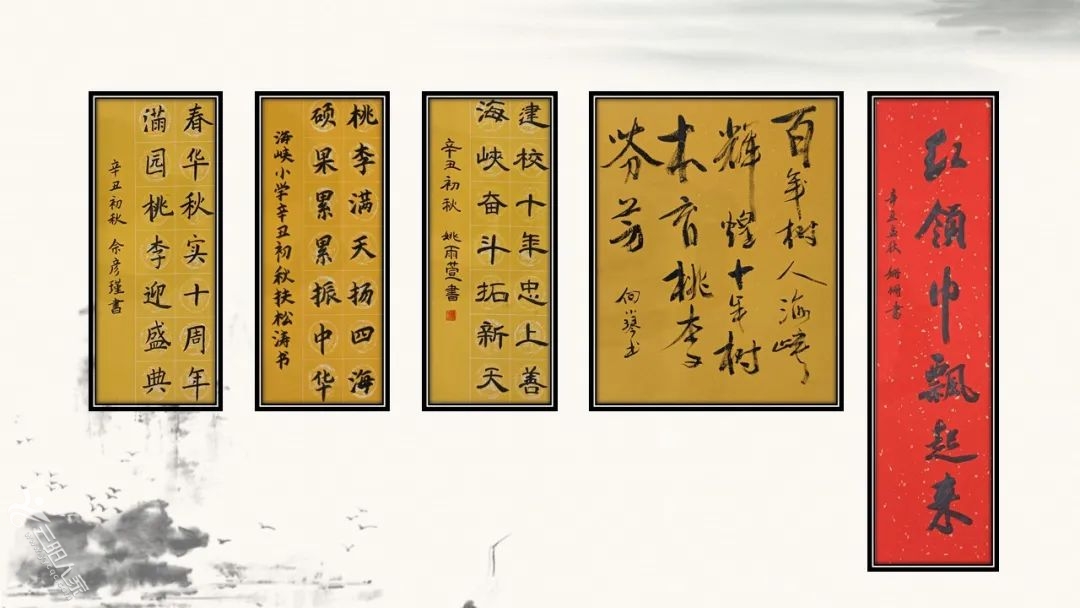 春华秋实十周年
满园桃李迎盛典
辛丑初秋 佘彦瑾书
桃李满天扬四海
硕果累累振中华
海峡小学辛丑初秋扶松涛书
建校十年忠上善
海峡奋斗拓新天
辛丑初秋 姚雨萱书
百年树人海峡
辉煌十年树
木育桃李
芬芳
红领巾飘起来
辛丑孟秋 姗姗书
云阳人家